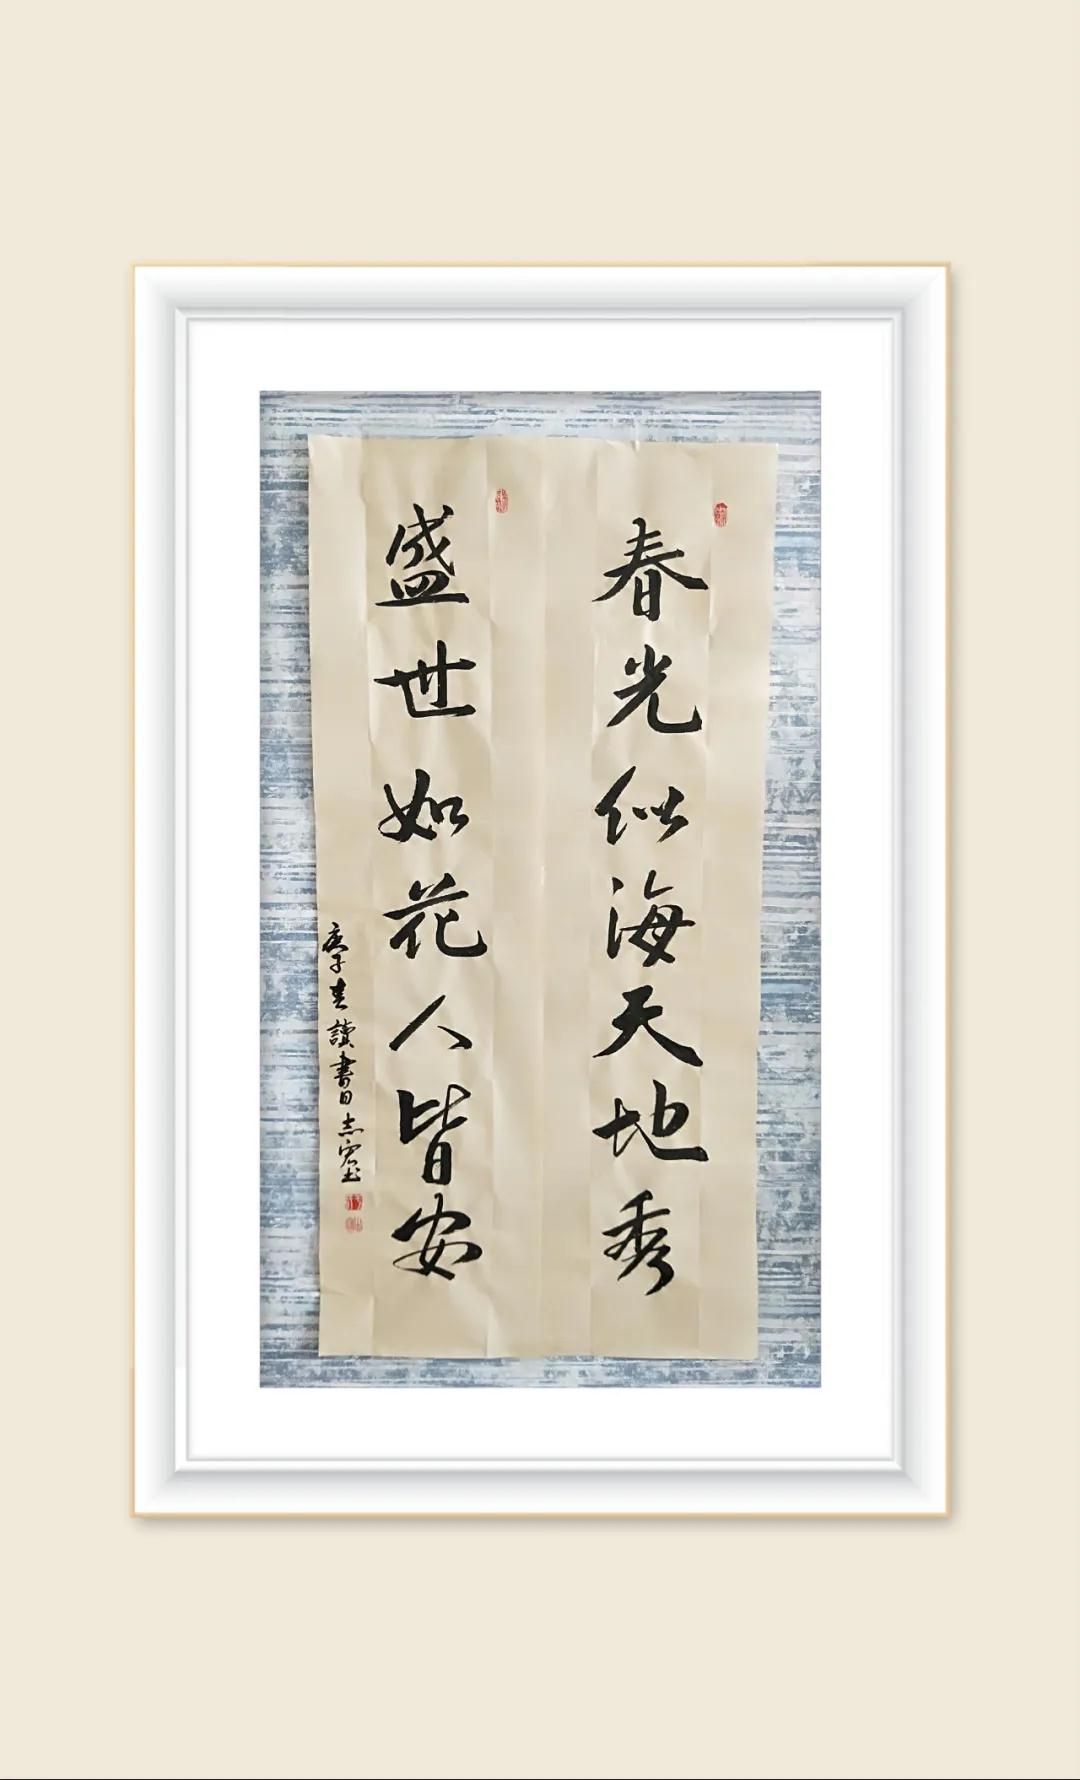 春光似海天地秀
盛世如花人皆安
庚子春讀書日志宏书